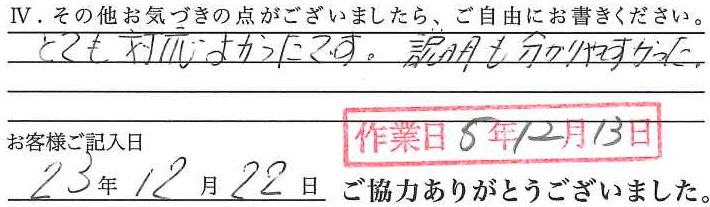 Ⅳ. その他お気づきの点がございましたら、ご自由にお書きください。
とても対応よかったです。説明も分かりやすかった。
作業日 5年12月13日
お客様ご記入日
23年12月22日 ご協力ありがとうございました。